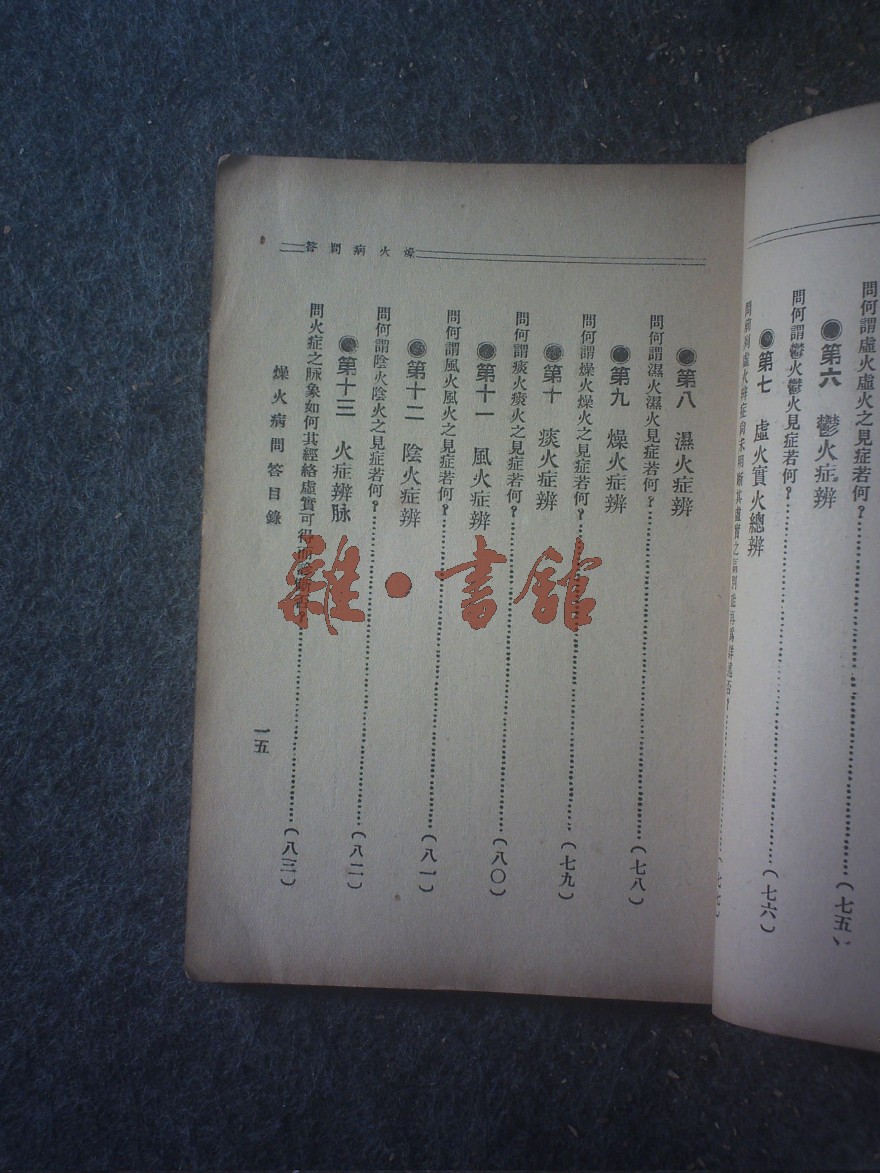 問何謂虛火虛火之見症若何？……(七五)
第六 鬱火症辨
問何謂鬱火鬱火見症若何？……(七六)
第七 虛火實火總辨
燥火病問答
第八 濕火症辨
問何謂濕火濕火見症若何？……(七八)
第九 燥火症辨
問何謂燥火燥火之見症若何？……(七九)
第十 痰火症辨
問何謂痰火痰火之見症若何？……(八〇)
第十一 風火症辨
問何謂風火風火之見症若何？……(八一)
第十二 陰火症辨
問何謂陰火陰火之見症若何？……(八二)
第十三 火症辨脉
問火症之脉象如何其經絡虛實可得而……(八三)
燥火病問答目錄
一五
雜·書館